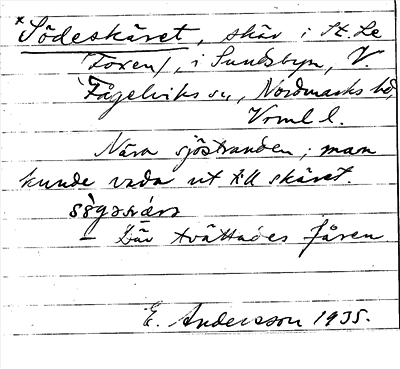 *Södeskäret, skär i St. Le
Foxen/, i Sundsbyn, V.
Fågelviks sn, Nordmarks hd,
Vrml l.
Nära sjöstranden; man
kunde vada ut till skäret.
– Där tvättades fåren.
E. Andersson 1935.